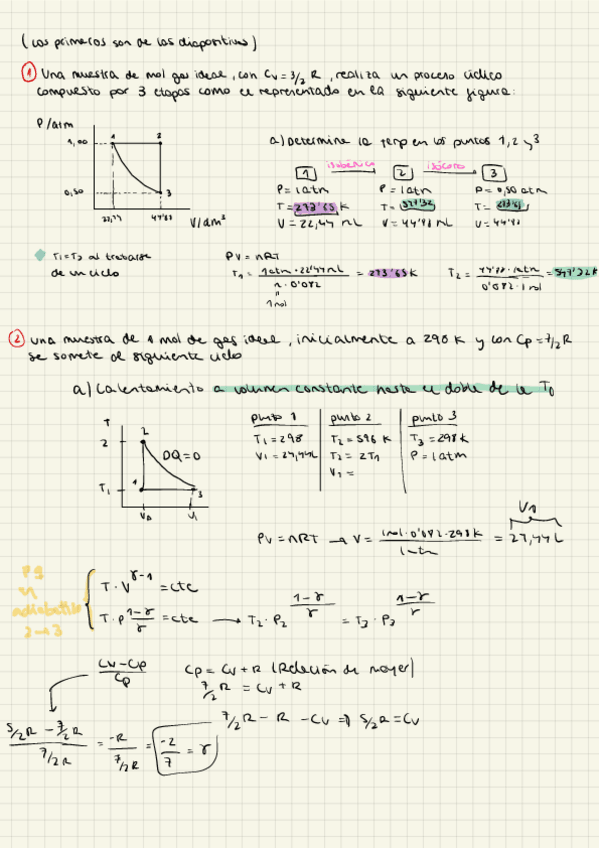 (Los primeros son de las diapositivas)
① Una muestra de mol gas ideal, con Cv = 3/2 R, realiza un proceso cíclico
compuesto por 3 etapas como el representado en la siguiente figura:
P/atm
1,00
0,50
1
2
3
22,44
44'88
V/dm³
a) Determine la temp en los puntos 1, 2 y 3
isobárico
isócoro
1
2
3
P = 1 atm
P = 1 atm
P = 0,50 atm
T = 273'65 K
T = 547'32
T = 273'65
V = 22,44 mL
V = 44'88 mL
V = 44'88
T1 = T3 al tratarse
de un ciclo
PV = nRT
T1 = 1 atm · 22'44 mL / n · 0'082 = 273'65 K
1 mol
T2 = 44'88 · 1 atm / 0'082 · 1 mol = 547'32 K
② Una muestra de 1 mol de gas ideal, inicialmente a 298 K y con Cp = 7/2 R
se somete al siguiente ciclo
a) Calentamiento a volumen constante hasta el doble de la T0
T
2
T1
2
DQ = 0
1
3
V0
V1
punto 1
punto 2
punto 3
T1 = 298
T2 = 596 K
T3 = 298 K
V1 = 24,44L
T2 = 2T1
P = 1 atm
V2 =
V1
PV = nRT → V = 1mol · 0'082 · 298 K / 1 atm = 24,44 L
adiabático
2 → 3
T · V^γ-1 = cte
T · P^(1-γ/γ) = cte → T2 · P2^(1-γ/γ) = T3 · P3^(1-γ/γ)
Cv - Cp / Cp
Cp = Cv + R (Relación de mayer)
7/2 R = Cv + R
7/2 R - R - Cv ⇒ 5/2 R = Cv
5/2 R - 7/2 R / 7/2 R = -R / 7/2 R = -2/7 = γ